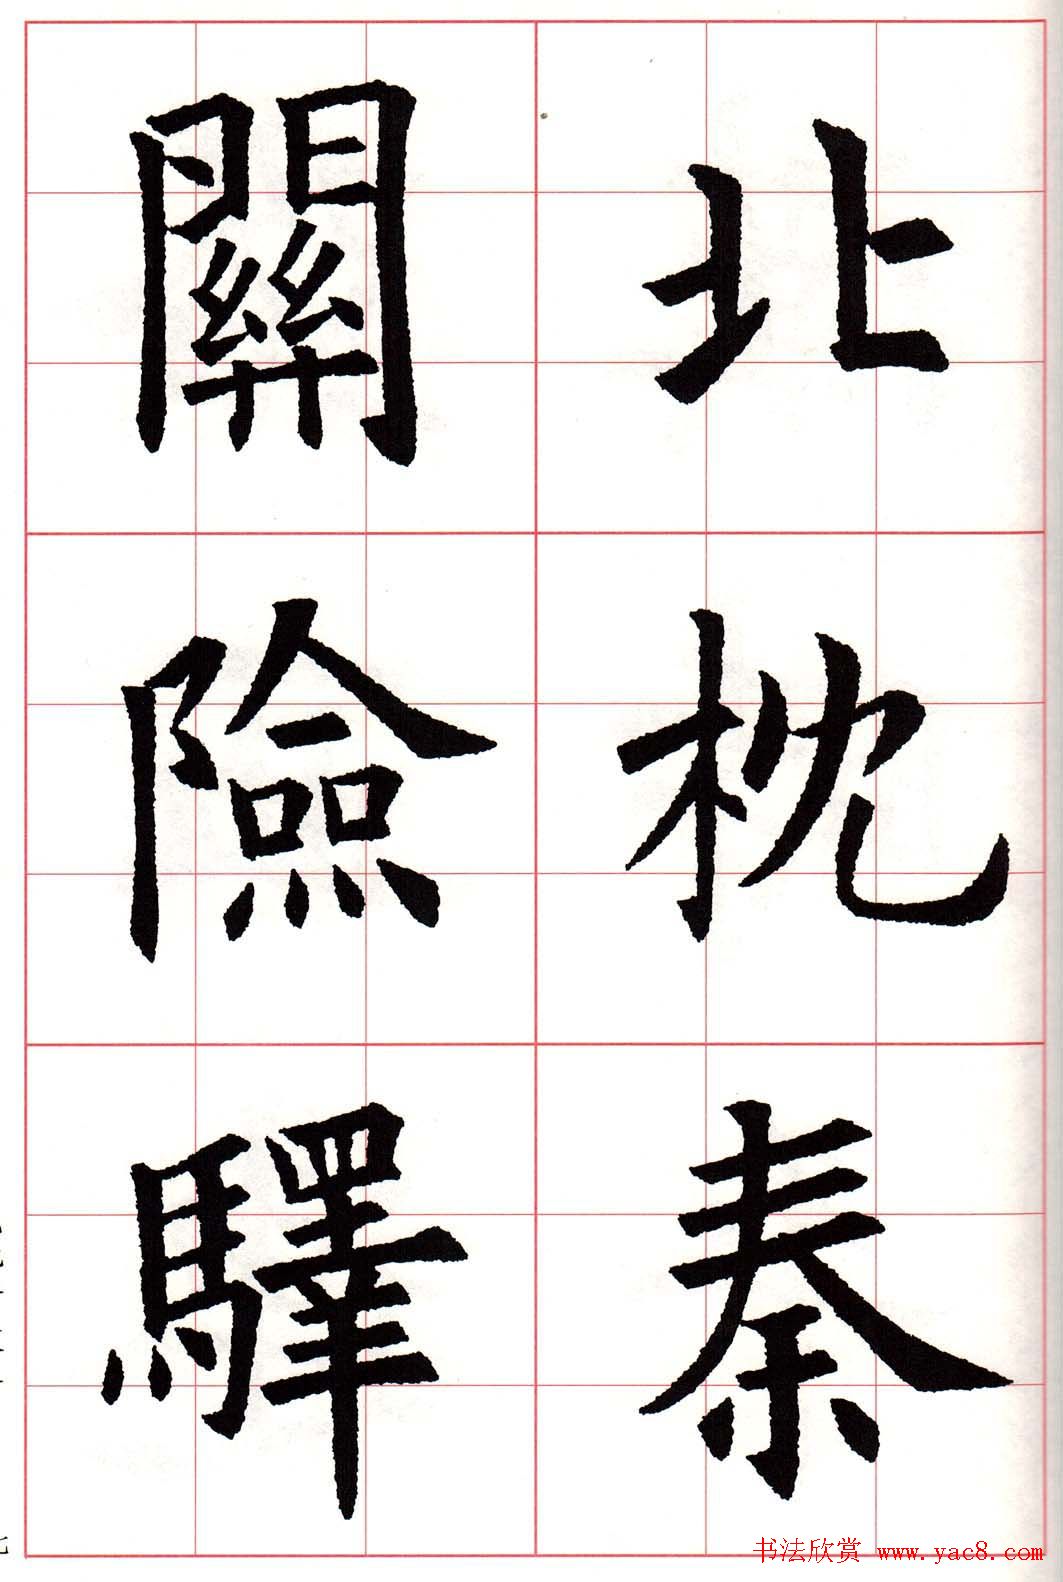 北枕秦
關險驛
七
书法欣赏 www.yac8.com